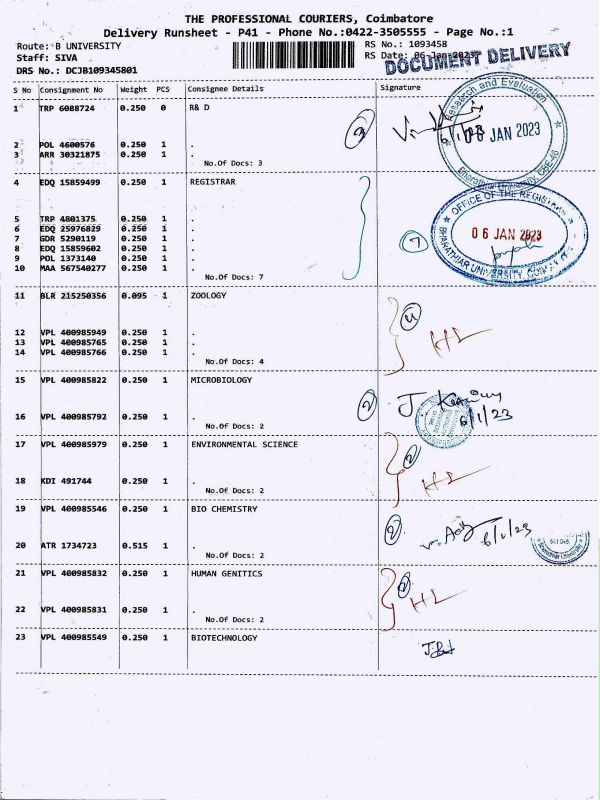 THE PROFESSIONAL COURIERS, Coimbatore
Delivery Runsheet - P41 - Phone No.:0422-3505555 - Page No.:1
Route: B UNIVERSITY
RS No.: 1093458
Staff: SIVA
RS Date: 06-Jan-2023
DRS No.: DCJB109345801
DOCUMENT DELIVERY
S No Consignment No Weight PCS Consignee Details Signature
1 TRP 6088724 0.250 0 R& D
Research and Evaluation
3
6/1/23
06 JAN 2023
Bharathiar University, CBE-46
2 POL 4600576 0.250 1 .
3 ARR 30321875 0.250 1 .
No.Of Docs: 3
4 EDQ 15859499 0.250 1 REGISTRAR
OFFICE OF THE REGISTRAR
5 TRP 4801375 0.250 1 .
6 EDQ 25976829 0.250 1 .
06 JAN 2023
7 GDR 5290119 0.250 1 .
7
8 EDQ 15859602 0.250 1 .
9 POL 1373140 0.250 1 .
10 MAA 567540277 0.250 1 .
BHARATHIAR UNIVERSITY,
No.Of Docs: 7
11 BLR 215250356 0.095 1 ZOOLOGY
4
12 VPL 400985949 0.250 1 .
13 VPL 400985765 0.250 1 .
14 VPL 400985766 0.250 1 .
No.Of Docs: 4
15 VPL 400985822 0.250 1 MICROBIOLOGY
2
6/1/23
16 VPL 400985792 0.250 1 .
No.Of Docs: 2
17 VPL 400985979 0.250 1 ENVIRONMENTAL SCIENCE
2
18 KDI 491744 0.250 1 .
No.Of Docs: 2
19 VPL 400985546 0.250 1 BIO CHEMISTRY
2
6/1/23
641 046.
Bharathiar University
20 ATR 1734723 0.515 1 .
No.Of Docs: 2
21 VPL 400985832 0.250 1 HUMAN GENITICS
2
22 VPL 400985831 0.250 1 .
No.Of Docs: 2
23 VPL 400985549 0.250 1 BIOTECHNOLOGY